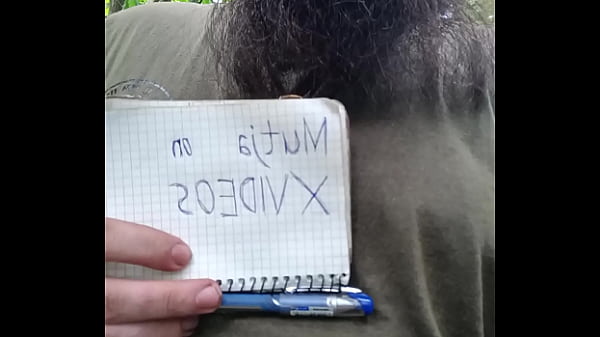 Mutja on
XVIDEOS